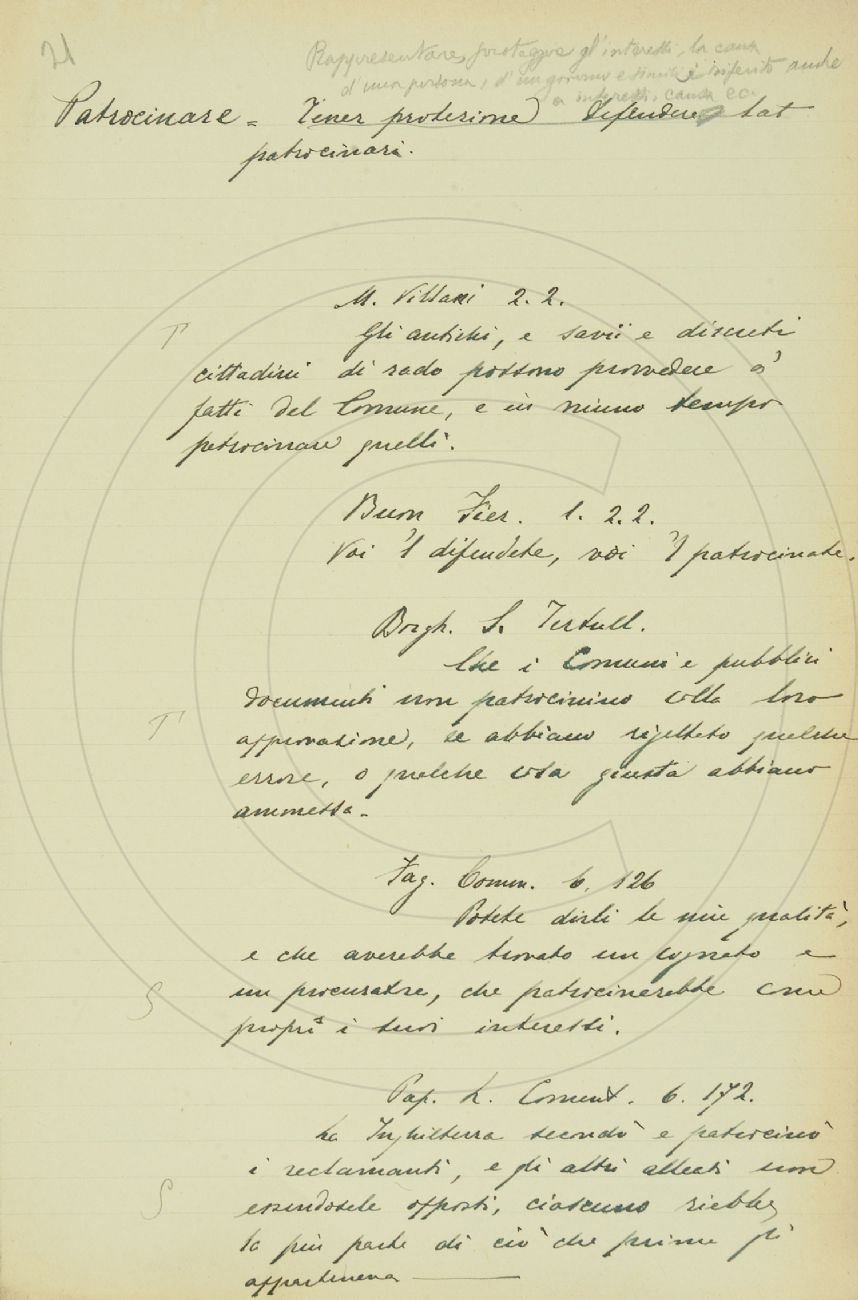 21
Rappresentare, proteggere gl'interessi, la causa
d'una persona, d'un governo e simili è riferito anche
a interessi, causa ec.
Patrocinare = Tener protezione, difendere lat
patrocinari.
M. Villani 2. 2.
T Gli antichi, e savii e discreti
cittadini di rado possono provvedere a'
fatti del Comune, e in niuno tempo
patrocinare quelli.
Buon Fier. 1. 2.2.
Voi 'l difendete, voi 'l patrocinate.
Borgh. S. Tertull.
Che i Comuni e pubblici
documenti non patrocinino colla loro
T approvazione, se abbiano rigettato qualche
errore, o qualche cosa giusta abbiano
ammessa.
Fag. Comm. 6. 126
Potete dirli le mie qualità,
e che averebbe trovato un cognato e
S un procuratore, che patrocinerebbe come
proprî i suoi interessi.
Pap. L. Coment. 6. 172.
La Inghilterra secondò e patrocinò
i reclamanti, e gli altri alleati non
S essendosele opposti, ciascuno riebbe
la più parte di ciò che prima gli
apparteneva